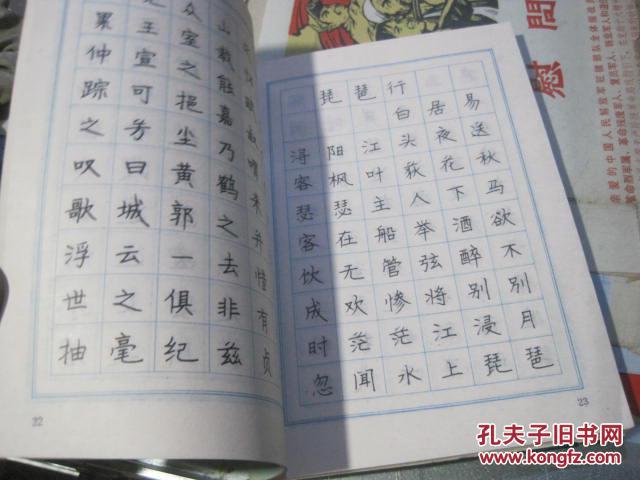 众山
累王室载
仲宣之能
踪可挹嘉叔
之芳尘乃喟
叹曰黄鹤来
歌城郭之并
浮云一去惜
世之俱非有
抽毫纪兹贞
22
琵琶行
白居易
浔阳江头夜送
客枫叶荻花秋
瑟瑟主人下马
客在船举酒欲
饮无管弦醉不
成欢惨将别别
时茫茫江浸月
忽闻水上琵琶
23
慰問
孔夫子旧书网
www.kongfz.com